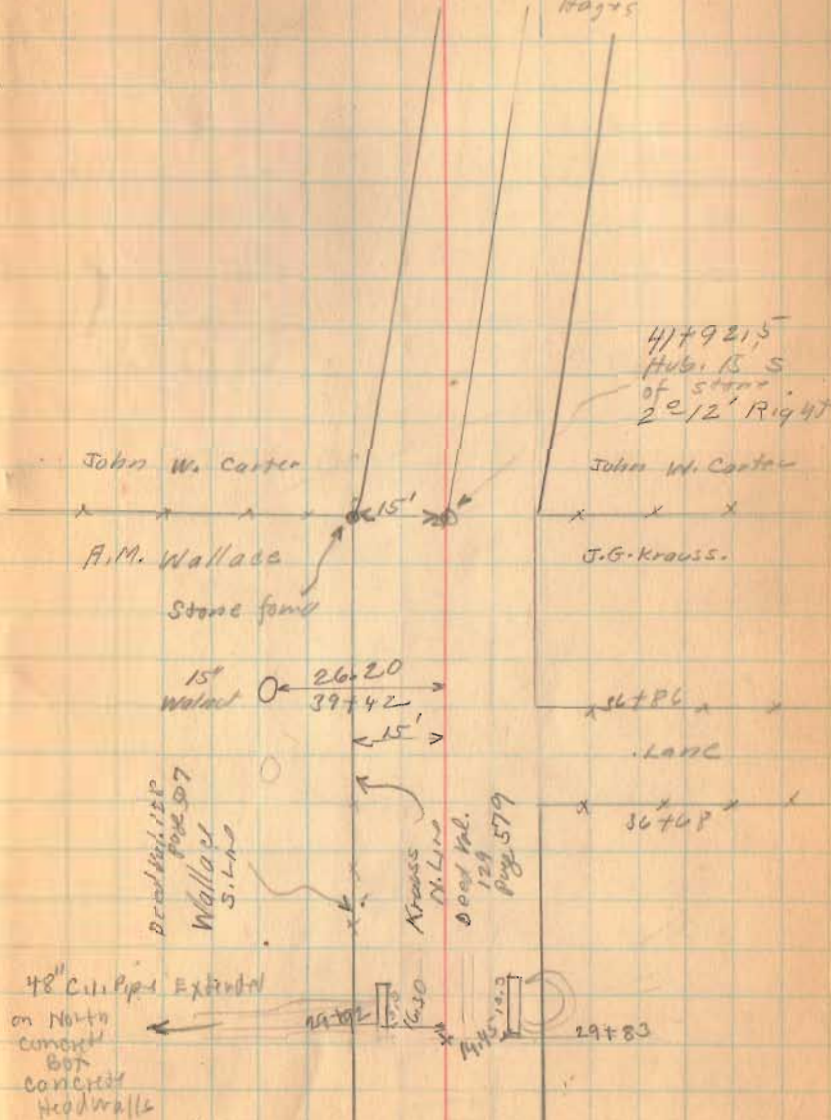 41+92.5
Hub. 15' S
of stone
2°-12' Right
John W. Carter
John W. Carter
15'
A.M. Wallace
J.G. Krauss.
Stone found
15"
Walnut
26.20
39+42
36+86
15'
Lane
36+68
Deed Vol. 128
Page
Wallace
S. Line
Krauss
N. Line
Deed Vol.
129
Page 579
48" C.I. Pipe Extended
on North
concrete
Box
concrete
Headwalls
29+92
10.0
16.30
14.45
10.3
29+83